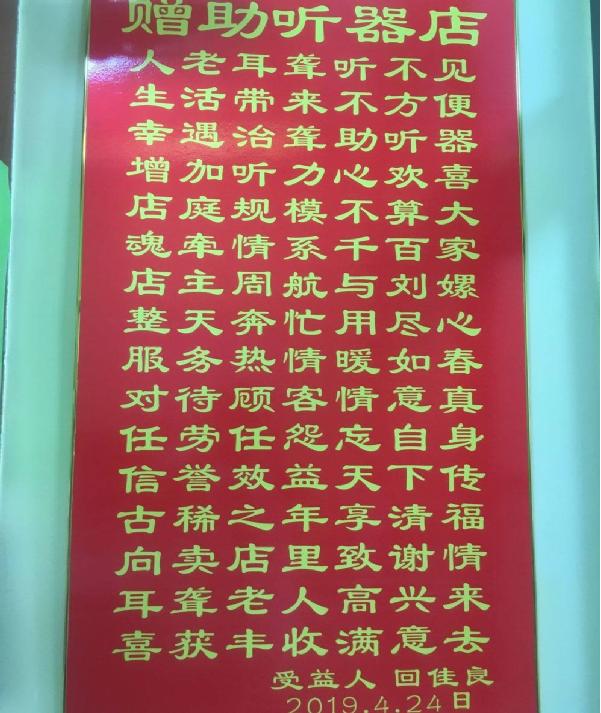 赠助听器店
人老耳聋听不见
生活带来不方便
幸遇治聋助听器
增加听力心欢喜
店庭规模不算大
魂牵情系千百家
店主周航与刘嫘
整天奔忙用尽心
服务热情暖如春
对待顾客情意真
任劳任怨忘自身
信誉效益天下传
古稀之年享清福
向卖店里致谢情
耳聋老人高兴来
喜获丰收满意去
受益人 回佳良
2019.4.24日